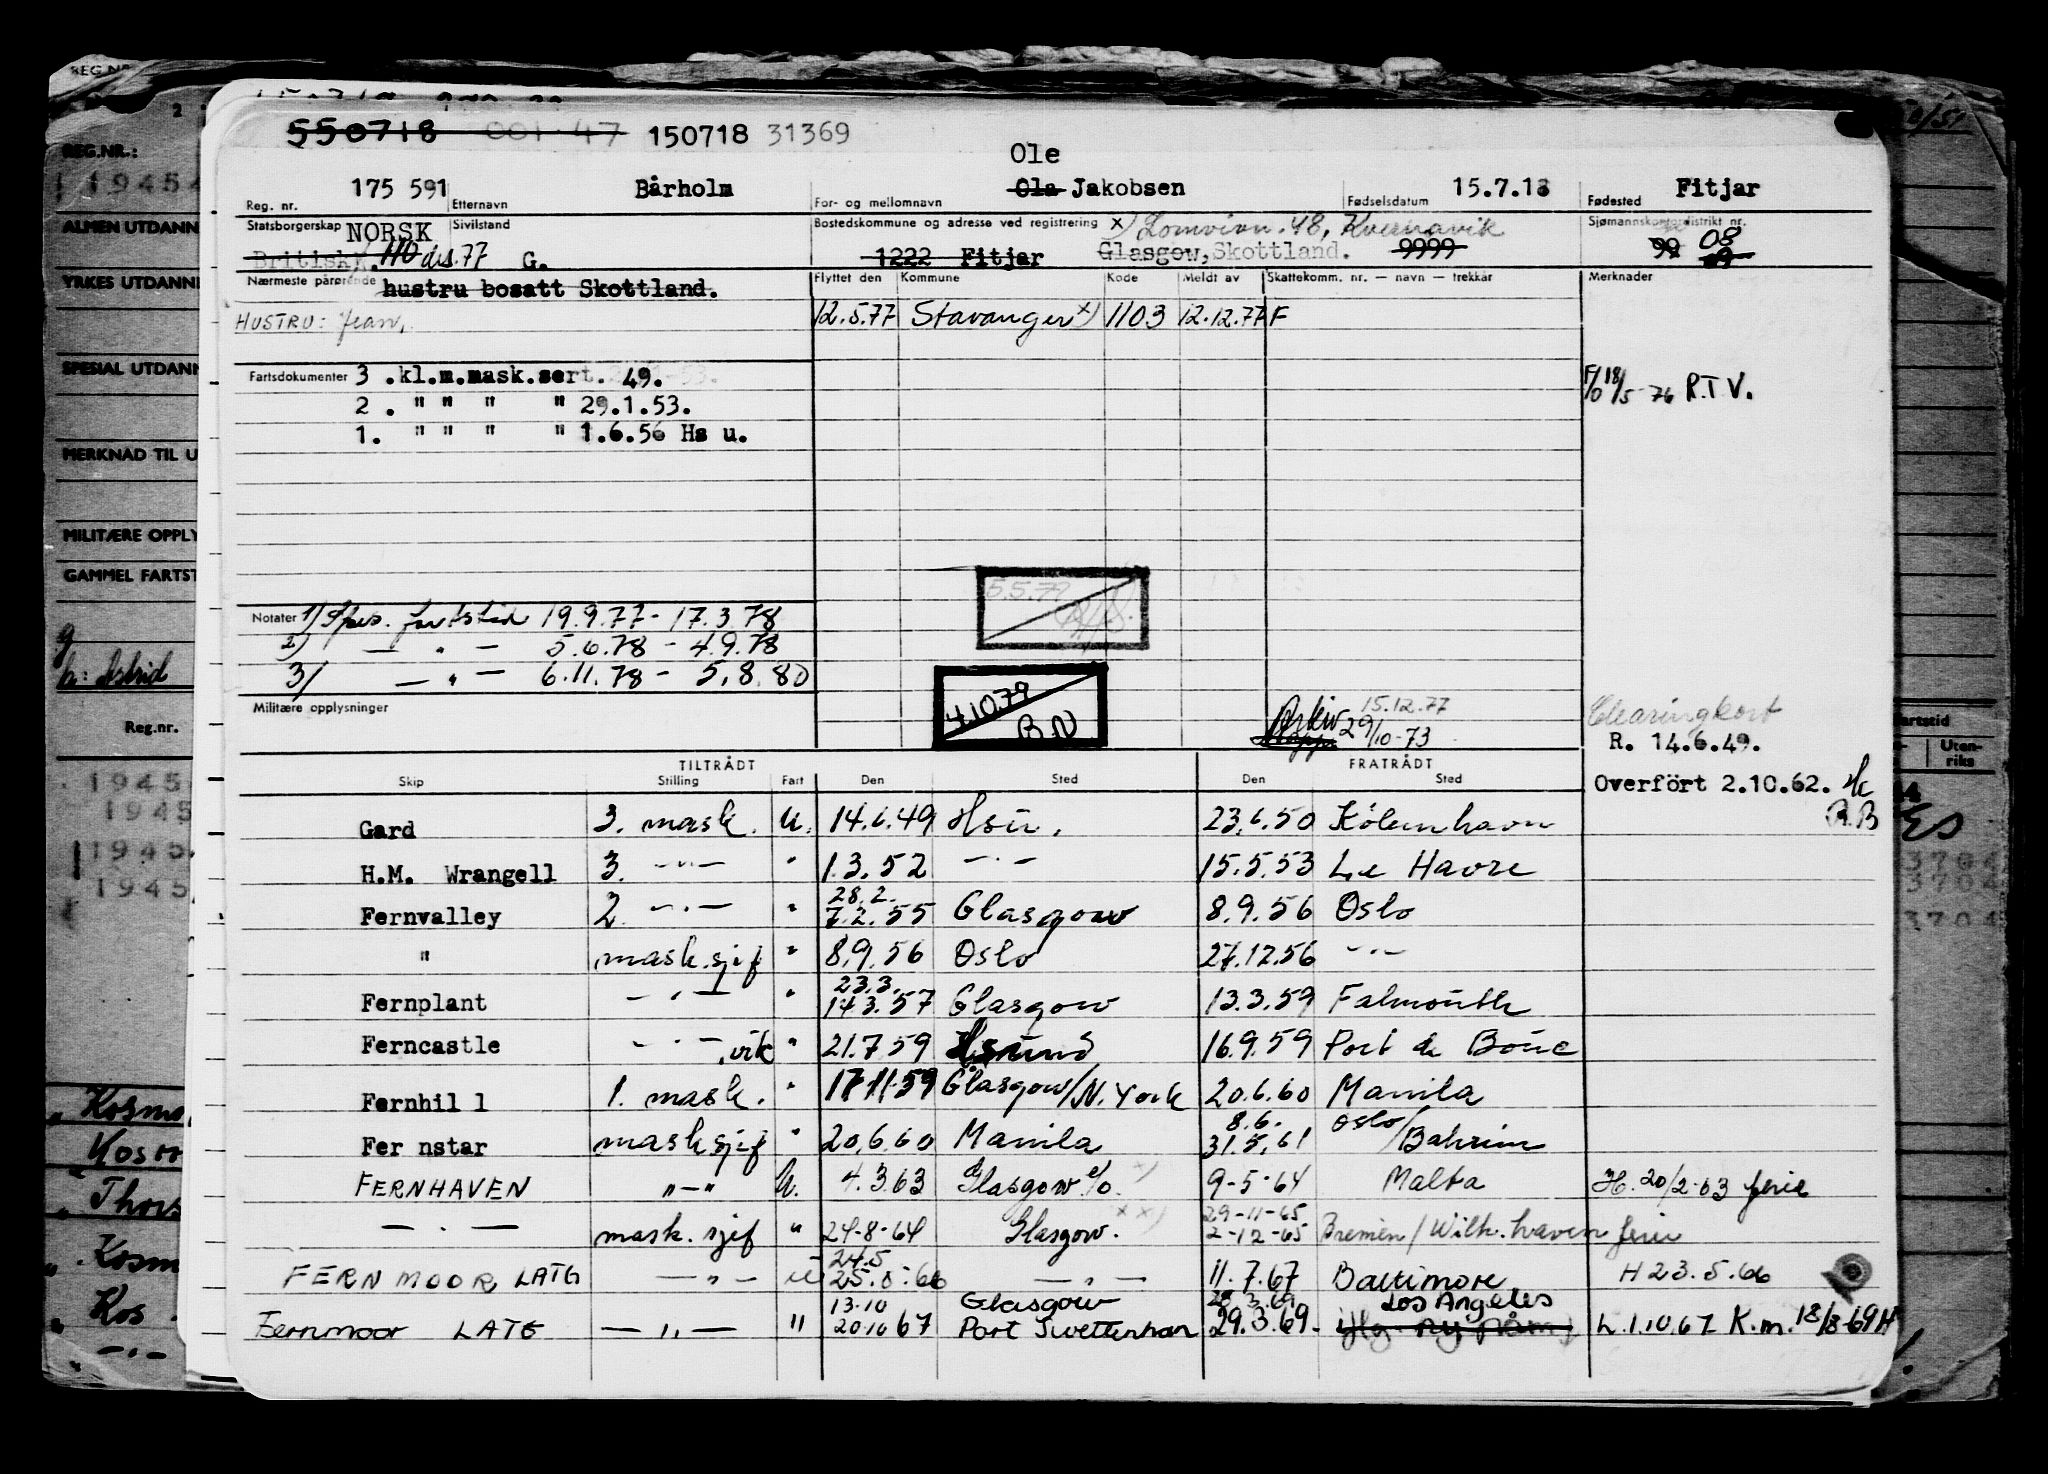 550718 001 47 150718 31369
Ole
175 591 Bårholm Ola Jakobsen 15.7.18 Fitjar
Reg. nr. Etternavn For- og mellomnavn Fødselsdatum Fødested
Statsborgerskap NORSK Sivilstand Bostedskommune og adresse ved registrering x) Lomvivn. 48, Kvernavik Sjømannskontordistrikt nr.
Britisk. des. 77 G. 1222 Fitjar Glasgow, Skottland. 9999 99 08
Nærmeste pårørende hustru bosatt Skottland. Flyttet den Kommune Kode Meldt av Skattekomm. nr. — navn — trekkår Merknader
HUSTRU: Jean, 12.5.77 Stavanger x) 1103 12.12.77 F
Fartsdokumenter 3 .kl.m.mask.sert. 49. F/O 18/5-76 R.T.V.
2 . " " " " 29.1.53.
1. " " " " 1.6.56 Hs u.
5.5.79
Notater 1) Spes. fartstid 19.9.77 - 17.3.78
2) — " — 5.6.78 - 4.9.78
3/ — " — 6.11.78 - 5.8.80
4.10.79 B.N
Militære opplysninger
Arkiv 15.12.77 29/10-73
Clearingkort
R. 14.6.49.
TILTRÅDT FRATRÅDT
Skip Stilling Fart Den Sted Den Sted
Overført 2.10.62.
R.B
Gard 3. mask. U. 14.6.49 Hsü. 23.6.50 Köbenhavn
H.M. Wrangell 3. —"— " 1.3.52 —"— 15.5.53 Le Havre
Fernvalley 2. —"— " 28.2. 7.2.55 Glasgow 8.9.56 Oslo
" mask.sjef " 8.9.56 Oslo 27.12.56 —"—
Fernplant —"— " 23.3. 14.3.57 Glasgow 13.3.59 Falmouth
Ferncastle —"— , vik " 21.7.59 H.sund 16.9.59 Port de Bouc
Fernhil l 1. mask. " 17.11.59 Glasgow/N. York 20.6.60 Manila
Fer nstar mask sjef " 20.6.60 Manila 8.6. 31.5.61 Oslo/Bahrein
FERNHAVEN "—" U. 4.3.63 Glasgow e/o. x) 9-5-64 Malta H. 20/2-63 ferie
— " — mask. sjef " 24-8-64 Glasgow. xx) 29-11-65 2-12-65 Bremen/Wilh.haven ferie
FERNMOOR LATG — " — 24.5 25.5.66 — " — 11.7.67 Baltimore H 23.5.66
Fernmoor LATG — " — " 13.10 20.10 67 Glasgow Port Swettenham 28.3.69 29.3.69 Los Angeles L. 1.10.67 K.m. 18/8-69 H
REG.NR.:
19454
ALMEN UTDANN
YRKES UTDANN
SPESIAL UTDANN
MERKNAD TIL U
MILITÆRE OPPLY
GAMMEL FARTST
h: Astrid
Reg.nr.
1945
1945
1945
1945
Kosmo
Kos
Thors
Kosm
Kos
artstid
Uten-
riks
3704
3704
3704